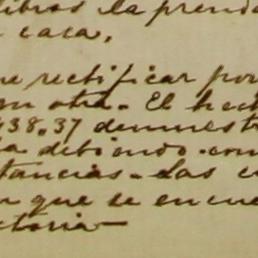 libros la prenda
casa,
rectificar por
otra. El hech
438.37 demuestr
debiendo con
tancias. Las c
que se encue
ctoria